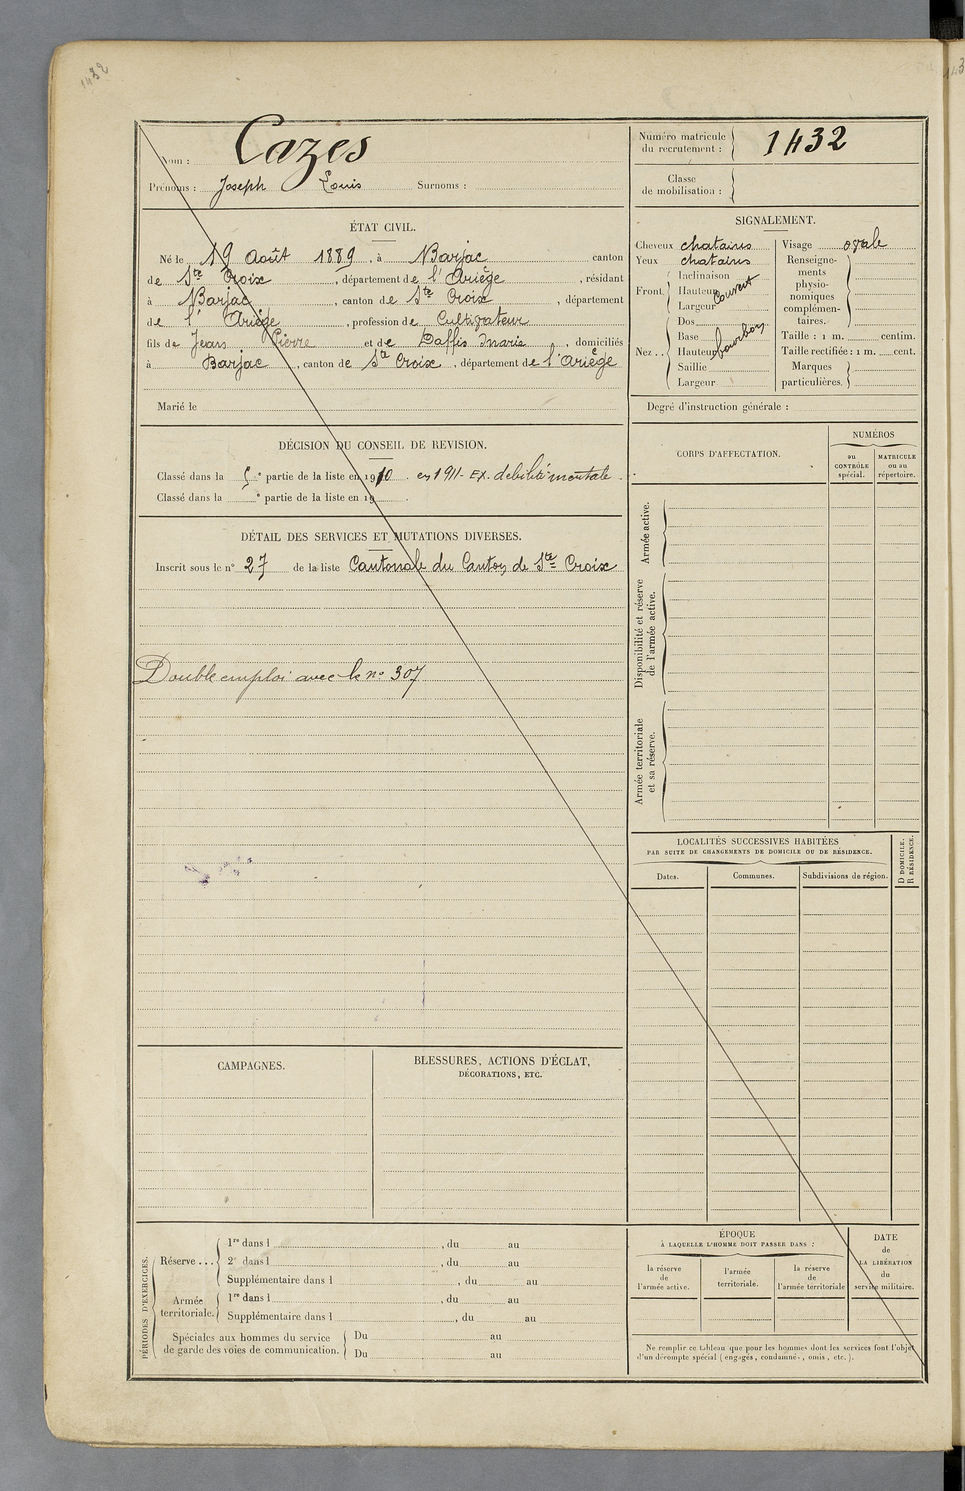 1432
Nom : Cazes
Prénoms : Joseph Louis Surnoms :
Numéro matricule du recrutement : 1432
Classe de mobilisation :
ÉTAT CIVIL.
Né le 19 Août 1889, à Barjac canton
de Ste Croix, département de l'Ariège, résidant
à Barjac, canton de Ste Croix, département
de l'Ariège, profession de Cultivateur
fils de Jean Pierre et de Daffis Marie, domiciliés
à Barjac, canton de Ste Croix, département de l'Ariège
Marié le
SIGNALEMENT.
Cheveux chatains
Yeux chatains
Front Inclinaison
Hauteur couvert
Largeur
Nez .. Dos
Base
Hauteur bourbon
Saillie
Largeur
Visage ovale
Renseigne-
ments
physio-
nomiques
complémen-
taires.
Taille : 1 m. centim.
Taille rectifiée : 1 m. cent.
Marques
particulières.
Degré d'instruction générale :
DÉCISION DU CONSEIL DE REVISION.
Classé dans la 5e partie de la liste en 1910 en 1911 Ex. débilité mentale.
Classé dans la e partie de la liste en 19 .
DÉTAIL DES SERVICES ET MUTATIONS DIVERSES.
Inscrit sous le n° 27 de la liste Cantonale du Canton de Ste Croix
Double emploi avec le no 307
CORPS D'AFFECTATION.
NUMÉROS
au
CONTRÔLE
spécial.
MATRICULE
ou au
répertoire.
Armée active.
Disponibilité et réserve
de l'armée active.
Armée territoriale
et sa réserve.
LOCALITÉS SUCCESSIVES HABITÉES
PAR SUITE DE CHANGEMENTS DE DOMICILE OU DE RÉSIDENCE.
D DOMICILE.
R RÉSIDENCE.
Dates. Communes. Subdivisions de région.
CAMPAGNES.
BLESSURES, ACTIONS D'ÉCLAT,
DÉCORATIONS, ETC.
PÉRIODES D'EXERCICES.
Réserve ...
1re dans l , du au
2e dans l , du au
Supplémentaire dans l , du au
Armée
territoriale.
1re dans l , du au
Supplémentaire dans l , du au
Spéciales aux hommes du service
de garde des voies de communication.
Du au
Du au
ÉPOQUE
À LAQUELLE L'HOMME DOIT PASSER DANS :
la réserve
de
l'armée active.
l'armée
territoriale.
la réserve
de
l'armée territoriale
DATE
de
LA LIBÉRATION
du
service militaire.
Ne remplir ce tableau que pour les hommes dont les services font l'objet
d'un décompte spécial (engagés, condamnés, omis, etc.).